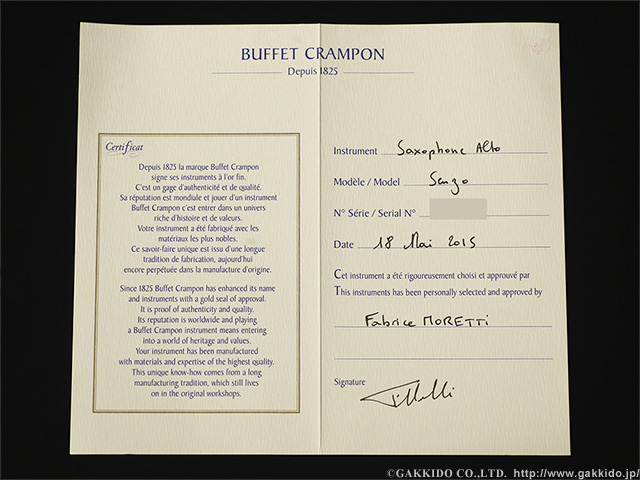 BUFFET CRAMPON
Depuis 1825
Certificat
Depuis 1825 la marque Buffet Crampon
signe ses instruments à l'or fin.
C'est un gage d'authenticité et de qualité.
Sa réputation est mondiale et jouer d'un instrument
Buffet Crampon c'est entrer dans un univers
riche d'histoire et de valeurs.
Votre instrument a été fabriqué avec les
matériaux les plus nobles.
Ce savoir-faire unique est issu d'une longue
tradition de fabrication, aujourd'hui
encore perpétuée dans la manufacture d'origine.
Since 1825 Buffet Crampon has enhanced its name
and instruments with a gold seal of approval.
It is proof of authenticity and quality.
Its reputation is worldwide and playing
a Buffet Crampon instrument means entering
into a world of heritage and values.
Your instrument has been manufactured
with materials and expertise of the highest quality.
This unique know-how comes from a long
manufacturing tradition, which still lives
on in the original workshops.
Instrument Saxophone Alto
Modèle / Model Senzo
N° Série / Serial N°
Date 18 Mai 2015
Cet instrument a été rigoureusement choisi et approuvé par
This instruments has been personally selected and approved by
Fabrice MORETTI
Signature
©GAKKIDO CO.,LTD. http://www.gakkido.jp/